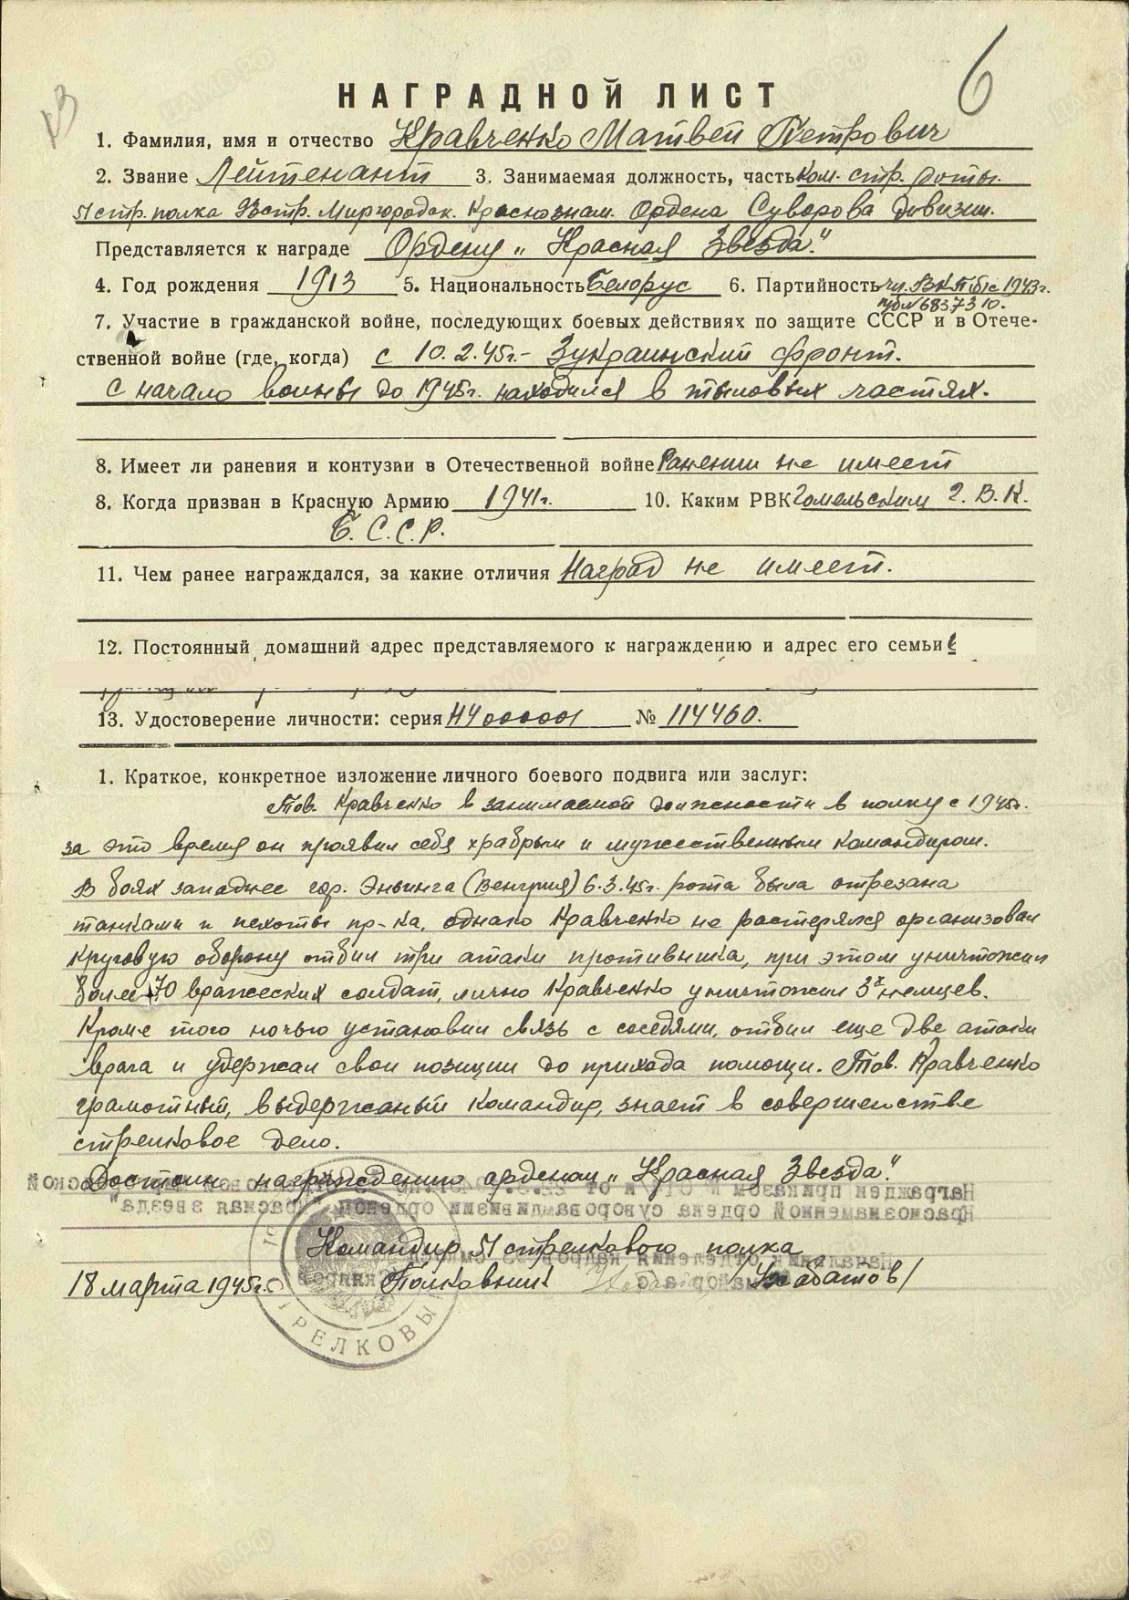 6
НАГРАДНОЙ ЛИСТ
1. Фамилия, имя и отчество Кравченко Матвей Петрович
2. Звание Лейтенант 3. Занимаемая должность, часть Ком. стр. роты.
51 стр. полка 93 стр. Миргородск. Краснознам. Ордена Суворова дивизии.
Представляется к награде Ордену „Красная Звезда".
4. Год рождения 1913 5. Национальность Белорус 6. Партийность чл. ВКП(б) с 1943г.
п/б №6837310.
7. Участие в гражданской войне, последующих боевых действиях по защите СССР и в Отече-
ственной войне (где, когда) с 10.2.45г.- 3 украинский фронт.
С начало войны до 1945г. находился в тыловых частях.
8. Имеет ли ранения и контузии в Отечественной войне Ранений не имеет
8. Когда призван в Красную Армию 1941г. 10. Каким РВК Гомельским Г.В.К.
Б.С.С.Р.
11. Чем ранее награждался, за какие отличия Наград не имеет.
12. Постоянный домашний адрес представляемого к награждению и адрес его семьи
13. Удостоверение личности: серия НЧ 000001 № 114460.
1. Краткое, конкретное изложение личного боевого подвига или заслуг:
Тов. Кравченко в занимаемой должности в полку с 1945г.
за это время он проявил себя храбрым и мужественным командиром.
В боях западнее гор. Эньинга (Венгрия) 6.3.45г. рота была отрезана
танками и пехоты пр-ка, однако Кравченко не растерялся организовал
круговую оборону отбил три атаки противника, при этом уничтожил
более 70 вражеских солдат, лично Кравченко уничтожил 3х немцев.
Кроме того ночью установил связь с соседями, отбил еще две атаки
врага и удержал свои позиции до прихода помощи. Тов. Кравченко
грамотный, выдержаный командир, знает в совершенстве
стрелковое дело.
Достоин награждению орденом „Красная Звезда".
Награжден приказом
Краснознаменной ордена суворова дивизии орденом "Красная звезда"
Командир 51 стрелкового полка
Начальник отделения кадров
18 марта 1945г. Полковник /Хабатов/
майор а/с
ТРЕЛКОВЫ